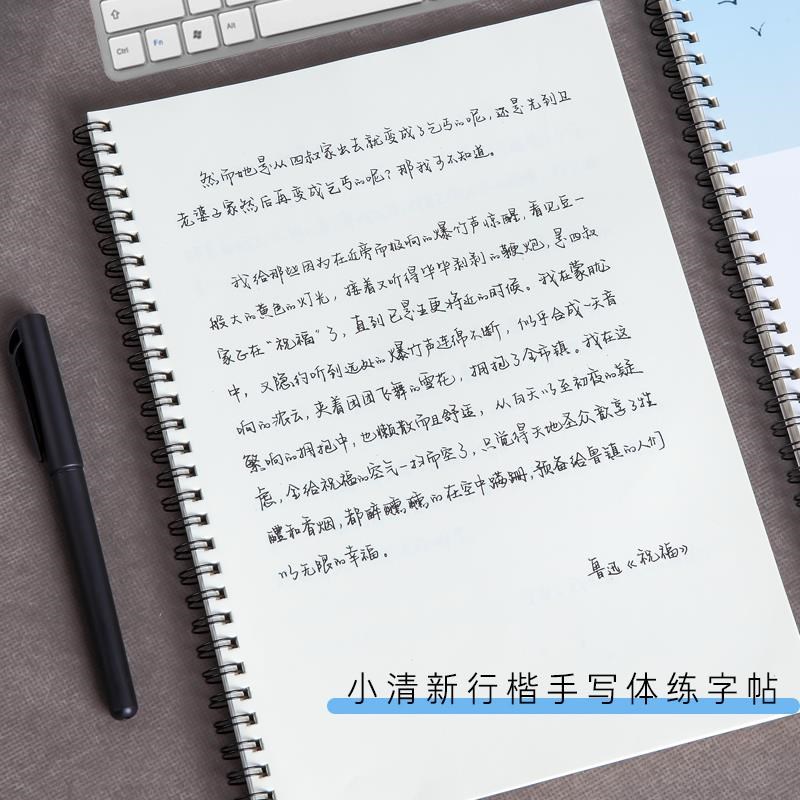 Ctrl
Fn
Alt
然而她是从四叔家出去就变成了乞丐的呢,还是先到卫
老婆子家然后再变成乞丐的呢?那我可不知道。
我给那些因为在近旁而极响的爆竹声惊醒,看见豆一
般大的黄色的灯光,接着又听得毕毕剥剥的鞭炮,是四叔
家正在“祝福”了,直到已是五更将近的时候。我在蒙胧
中,又隐约听到远处的爆竹声连绵不断,似乎合成一天音
响的浓云,夹着团团飞舞的雪花,拥抱了全市镇。我在这
繁响的拥抱中,也懒散而且舒适,从白天以至初夜的疑
虑,全给祝福的空气一扫而空了,只觉得天地圣众歆享了牲
醴和香烟,都醉醺醺的在空中蹒跚,预备给鲁镇的人们
以无限的幸福。
鲁迅《祝福》
小清新行楷手写体练字帖